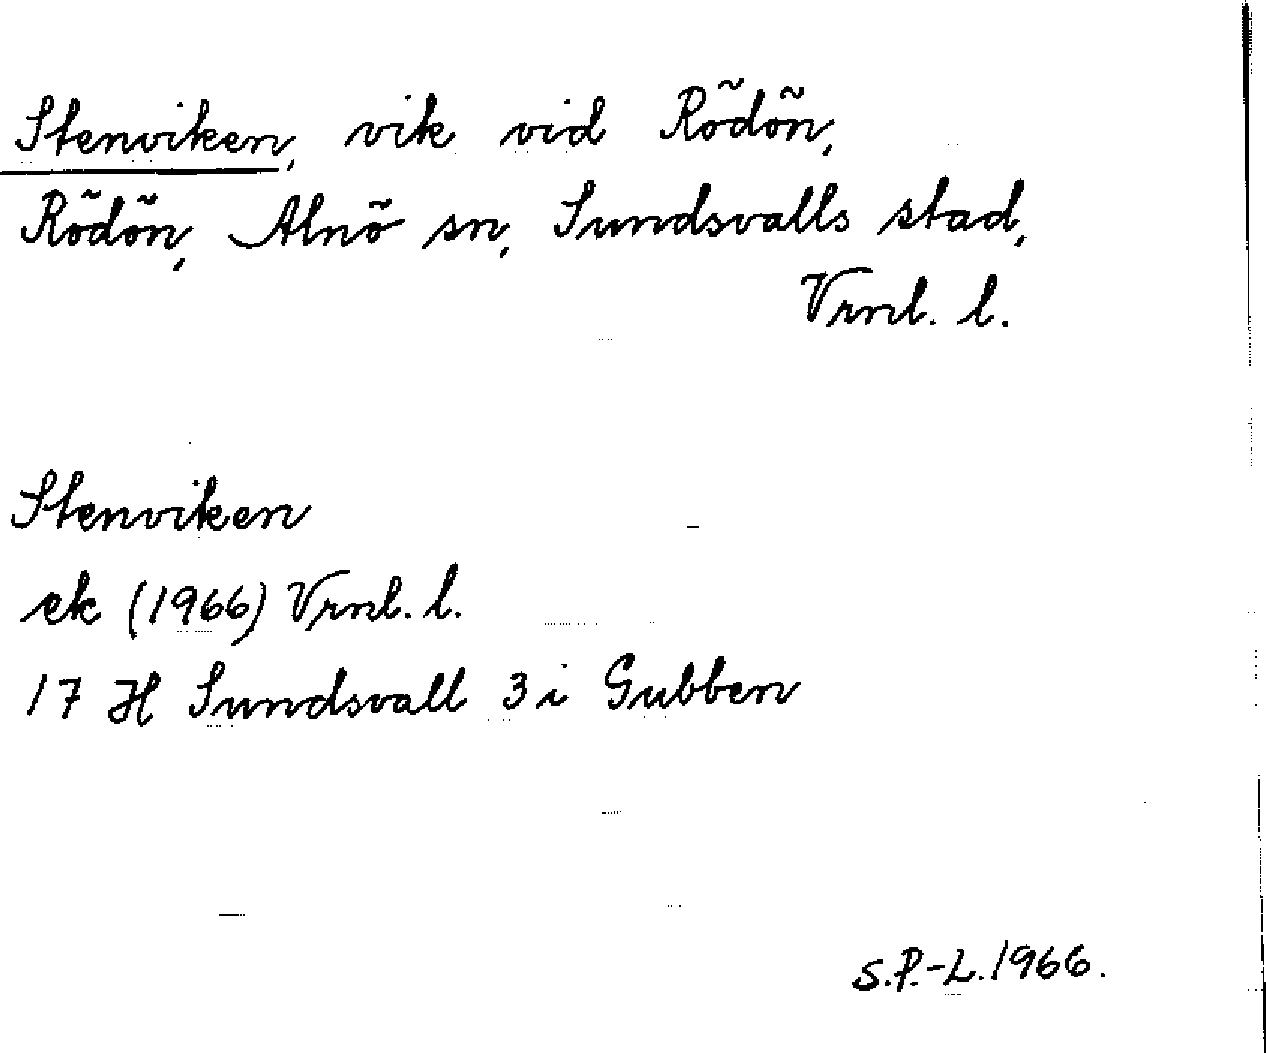 Stenviken, vik vid Rödön,
Rödön, Alnö sn, Sundsvalls stad,
Vrnl. l.
Stenviken
ek (1966) Vrnl. l.
17 H Sundsvall 3 i Gubben
S.P.-L. 1966.